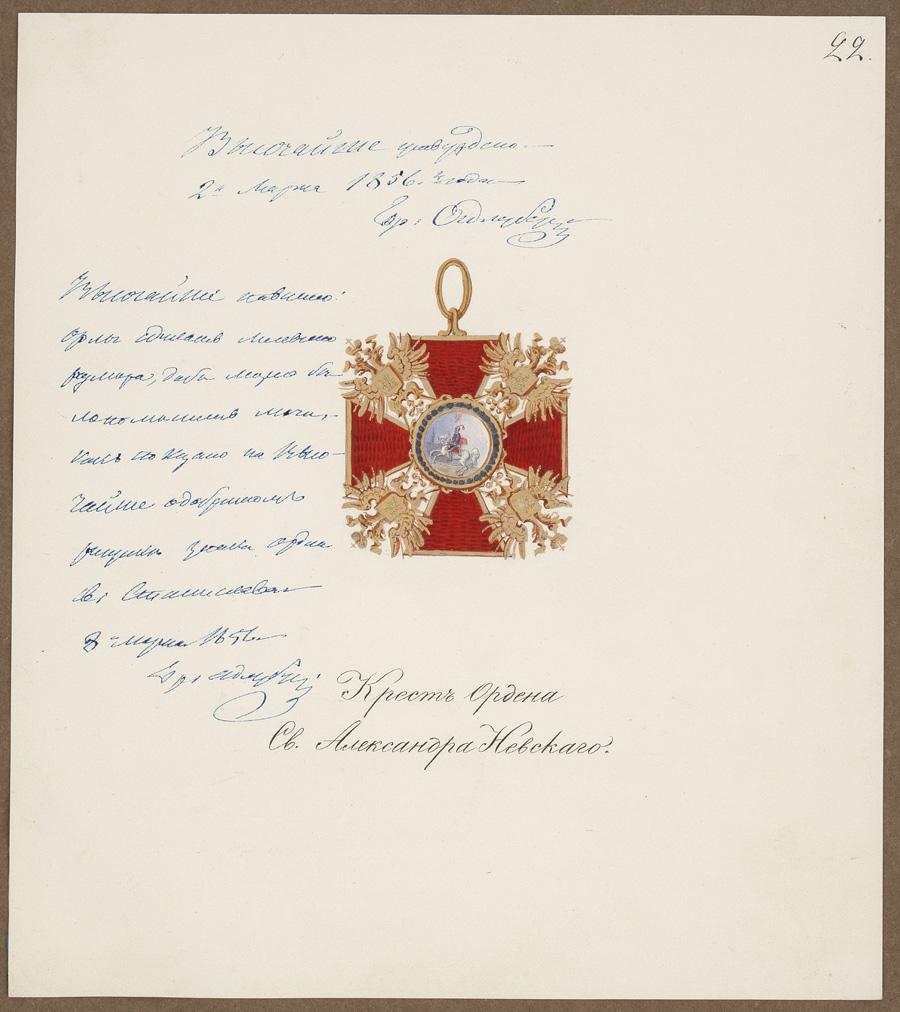 22.
Высочайше утверждено.
2го Марта 1856. года
Гр: Адлерберг
Высочайше повелено:
орлы сделать
рисунка, дабы можно бы
как показано на Высо-
чайше одобренном
рисунке знака ордена
Св: Станислава
3 Марта 1856
Гр: Адлерберг
Крестъ Ордена
Св. Александра Невскаго.